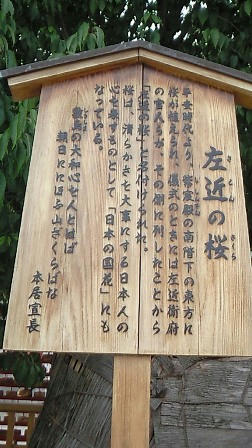 左近の桜
さこんのさくら
平安時代より、紫宸殿の南階下の東方に
桜が植えられ、儀式のときには左近衛府
の官人らが、その側に列したことから
「左近の桜」と名付けられた。
桜は、清らかさを大事にする日本人の
心を表すものとして「日本の国花」にも
なっている。
敷島の大和心を人とはば
朝日ににほふ山ざくらばな
本居宣長